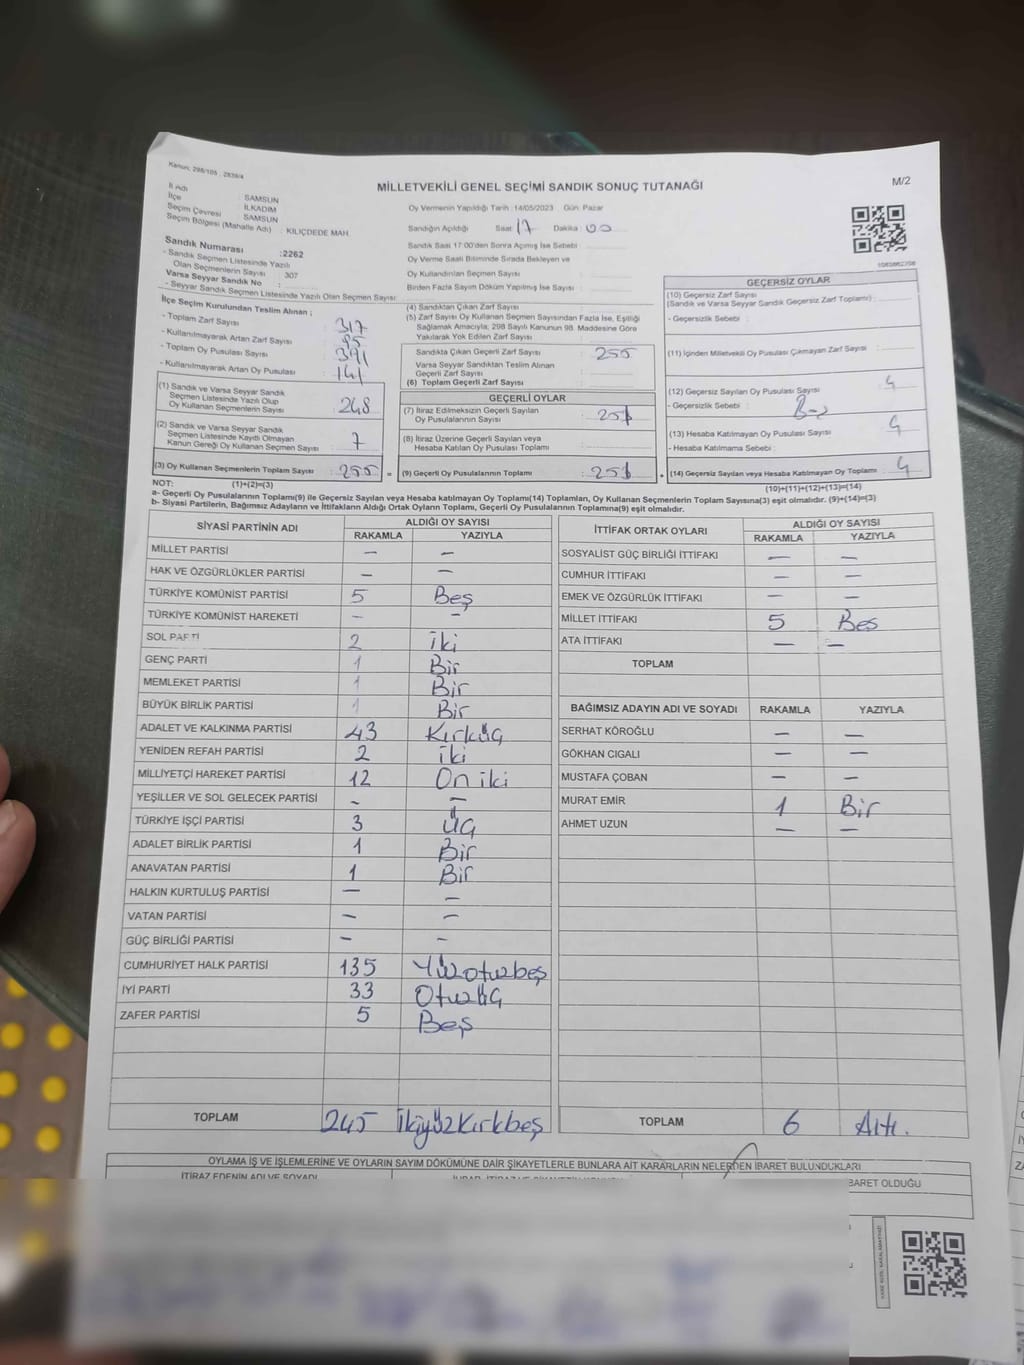 Kanun: 298/105 , 2839/4
MİLLETVEKİLİ GENEL SEÇİMİ SANDIK SONUÇ TUTANAĞI
M/2
İl Adı : SAMSUN
İlçe : İLKADIM
Seçim Çevresi : SAMSUN
Seçim Bölgesi (Mahalle Adı) : KILIÇDEDE MAH.
Sandık Numarası :2262
- Sandık Seçmen Listesinde Yazılı
Olan Seçmenlerin Sayısı : 307
Varsa Seyyar Sandık No :
- Seyyar Sandık Seçmen Listesinde Yazılı Olan Seçmen Sayısı:
İlçe Seçim Kurulundan Teslim Alınan ;
- Toplam Zarf Sayısı : 317
- Kullanılmayarak Artan Zarf Sayısı :
- Toplam Oy Pusulası Sayısı : 391
- Kullanılmayarak Artan Oy Pusulası : 141
(1) Sandık ve Varsa Seyyar Sandık
Seçmen Listesinde Yazılı Olup
Oy Kullanan Seçmenlerin Sayısı : 248
(2) Sandık ve Varsa Seyyar Sandık
Seçmen Listesinde Kayıtlı Olmayan
Kanun Gereği Oy Kullanan Seçmen Sayısı : 7
(3) Oy Kullanan Seçmenlerin Toplam Sayısı : 255
Oy Vermenin Yapıldığı Tarih :14/05/2023 Gün: Pazar
Sandığın Açıldığı Saat : 17 Dakika : 00
Sandık Saat 17:00'den Sonra Açılmış İse Sebebi :
Oy Verme Saati Bitiminde Sırada Bekleyen ve
Oy Kullandırılan Seçmen Sayısı :
Birden Fazla Sayım Döküm Yapılmış İse Sayısı :
(4) Sandıktan Çıkan Zarf Sayısı :
(5) Zarf Sayısı Oy Kullanan Seçmen Sayısından Fazla İse, Eşitliği
Sağlamak Amacıyla; 298 Sayılı Kanunun 98. Maddesine Göre
Yakılarak Yok Edilen Zarf Sayısı :
Sandıkta Çıkan Geçerli Zarf Sayısı : 255
Varsa Seyyar Sandıktan Teslim Alınan
Geçerli Zarf Sayısı :
(6) Toplam Geçerli Zarf Sayısı :
GEÇERLİ OYLAR
(7) İtiraz Edilmeksizin Geçerli Sayılan
Oy Pusulalarının Sayısı : 251
(8) İtiraz Üzerine Geçerli Sayılan veya
Hesaba Katılan Oy Pusulası Toplamı :
= (9) Geçerli Oy Pusulalarının Toplamı : 251
1083862708
GEÇERSİZ OYLAR
(10) Geçersiz Zarf Sayısı
(Sandık ve Varsa Seyyar Sandık Geçersiz Zarf Toplamı) :
- Geçersizlik Sebebi :
(11) İçinden Milletvekili Oy Pusulası Çıkmayan Zarf Sayısı :
(12) Geçersiz Sayılan Oy Pusulası Sayısı : 4
- Geçersizlik Sebebi :
(13) Hesaba Katılmayan Oy Pusulası Sayısı : 4
- Hesaba Katılmama Sebebi :
+ (14) Geçersiz Sayılan veya Hesaba Katılmayan Oy Toplamı : 4
NOT: (1)+(2)=(3) (10)+(11)+(12)+(13)=(14)
a- Geçerli Oy Pusulalarının Toplamı(9) ile Geçersiz Sayılan veya Hesaba katılmayan Oy Toplamı(14) Toplamları, Oy Kullanan Seçmenlerin Toplam Sayısına(3) eşit olmalıdır. (9)+(14)=(3)
b- Siyasi Partilerin, Bağımsız Adayların ve İttifakların Aldığı Ortak Oyların Toplamı, Geçerli Oy Pusulalarının Toplamına(9) eşit olmalıdır.
SİYASİ PARTİNİN ADI ALDIĞI OY SAYISI
RAKAMLA YAZIYLA
MİLLET PARTİSİ — —
HAK VE ÖZGÜRLÜKLER PARTİSİ — —
TÜRKİYE KOMÜNİST PARTİSİ 5 Beş
TÜRKİYE KOMÜNİST HAREKETİ — —
SOL PARTİ 2 İki
GENÇ PARTİ 1 Bir
MEMLEKET PARTİSİ 1 Bir
BÜYÜK BİRLİK PARTİSİ 1 Bir
ADALET VE KALKINMA PARTİSİ 43 Kırküç
YENİDEN REFAH PARTİSİ 2 İki
MİLLİYETÇİ HAREKET PARTİSİ 12 On iki
YEŞİLLER VE SOL GELECEK PARTİSİ — —
TÜRKİYE İŞÇİ PARTİSİ 3 Üç
ADALET BİRLİK PARTİSİ 1 Bir
ANAVATAN PARTİSİ 1 Bir
HALKIN KURTULUŞ PARTİSİ — —
VATAN PARTİSİ — —
GÜÇ BİRLİĞİ PARTİSİ — —
CUMHURİYET HALK PARTİSİ 135 Yüzotuzbeş
İYİ PARTİ 33 Otuzüç
ZAFER PARTİSİ 5 Beş
TOPLAM 245 İkiyüzkırkbeş
İTTİFAK ORTAK OYLARI ALDIĞI OY SAYISI
RAKAMLA YAZIYLA
SOSYALİST GÜÇ BİRLİĞİ İTTİFAKI — —
CUMHUR İTTİFAKI — —
EMEK VE ÖZGÜRLÜK İTTİFAKI — —
MİLLET İTTİFAKI 5 Beş
ATA İTTİFAKI — —
TOPLAM
BAĞIMSIZ ADAYIN ADI VE SOYADI RAKAMLA YAZIYLA
SERHAT KÖROĞLU — —
GÖKHAN CIGALI — —
MUSTAFA ÇOBAN — —
MURAT EMİR 1 Bir
AHMET UZUN — —
TOPLAM 6 Altı.
OYLAMA İŞ VE İŞLEMLERİNE VE OYLARIN SAYIM DÖKÜMÜNE DAİR ŞİKAYETLERLE BUNLARA AİT KARARLARIN NELERDEN İBARET BULUNDUKLARI
İTİRAZ EDENİN ADI VE SOYADI
BARET OLDUĞU